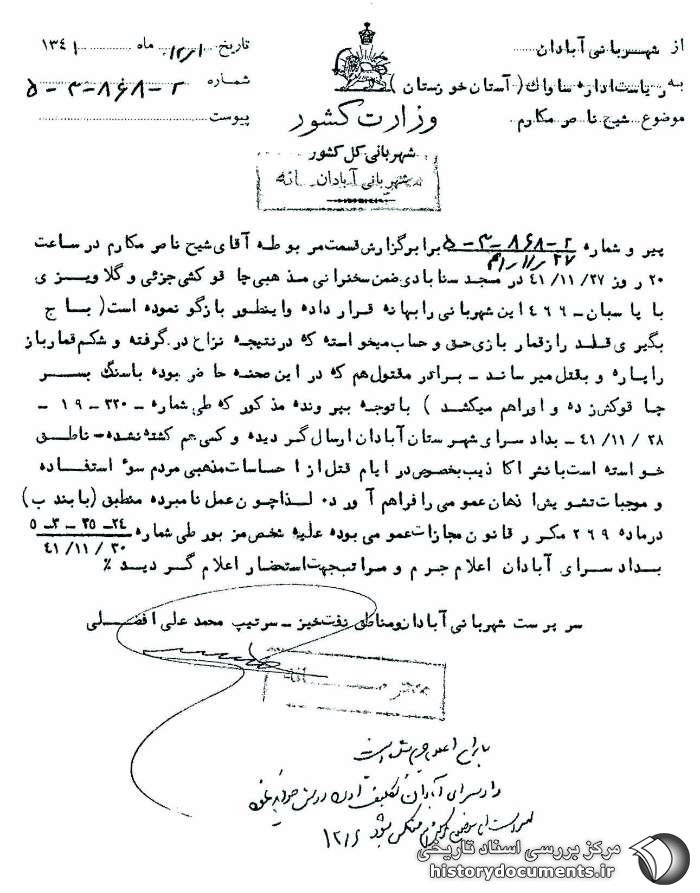 از شهربانی آبادان
به ریاست اداره ساواک ( آستان خوزستان )
موضوع شیخ ناصر مکارم
تاریخ ۱۲/۱ ماه ۱۳۴۱
شماره ۵-۳-۸۶۸-۲
پیوست
وزارت کشور
شهربانی کل کشور
شهربانی آبادان
پیر و شماره ۵-۳-۸۶۸-۲ برابر گزارش قسمت مربوطه آقای شیخ ناصر مکارم در ساعت
۲۷/۱۱/۴۱
۲۰ روز ۴۱/۱۱/۲۷ در مسجد سنابادی ضمن سخنرانی مذهبی چاقو کشی جزئی و گلاویزی
با پاسبان - ۴۶۶ این شهربانی را بهانه قرار داده و اینطور بازگو نموده است ( باج
بگیری قلد را ز قمار بازی حق و حساب میخواسته که در نتیجه نزاع در گرفته و شکم قمارباز
را پاره و بقتل میرساند - برادر مقتول هم که در این صحنه حاضر بوده با سنگ بسر
چاقوکش زده و او را هم میکشد ) با توجه بپرونده مذکور که طی شماره - ۳۲۰ - ۱۹ -
۴۱/۱۱/۲۸ - بدادسرای شهرستان آبادان ارسال گردیده و کسی هم کشته نشده - ناطق
خواسته است با نشر اکاذیب بخصوص در ایام قتل از احساسات مذهبی مردم سوء استفاده
و موجبات تشویش اذهان عمومی را فراهم آورده لذا چون عمل نامبرده منطبق ( با بند ب )
در ماده ۲۶۹ مکرر قانون مجازات عمومی بوده علیه شخص مزبور طی شماره ۲۴-۳۵-۳-۵
۴۱/۱۱/۳۰
بدادسرای آبادان اعلام جرم و مراتب جهت استحضار اعلام گردید ٪
سرپرست شهربانی آبادان و مناطق نفت خیز - سرتیپ محمد علی افضلی
اعلام جرم شده است
دادسرای آبادان تکلیف او را روشن خواهد نمود
منعکس شود ۱۲/۶
مرکز بررسی اسناد تاریخی
historydocuments.ir